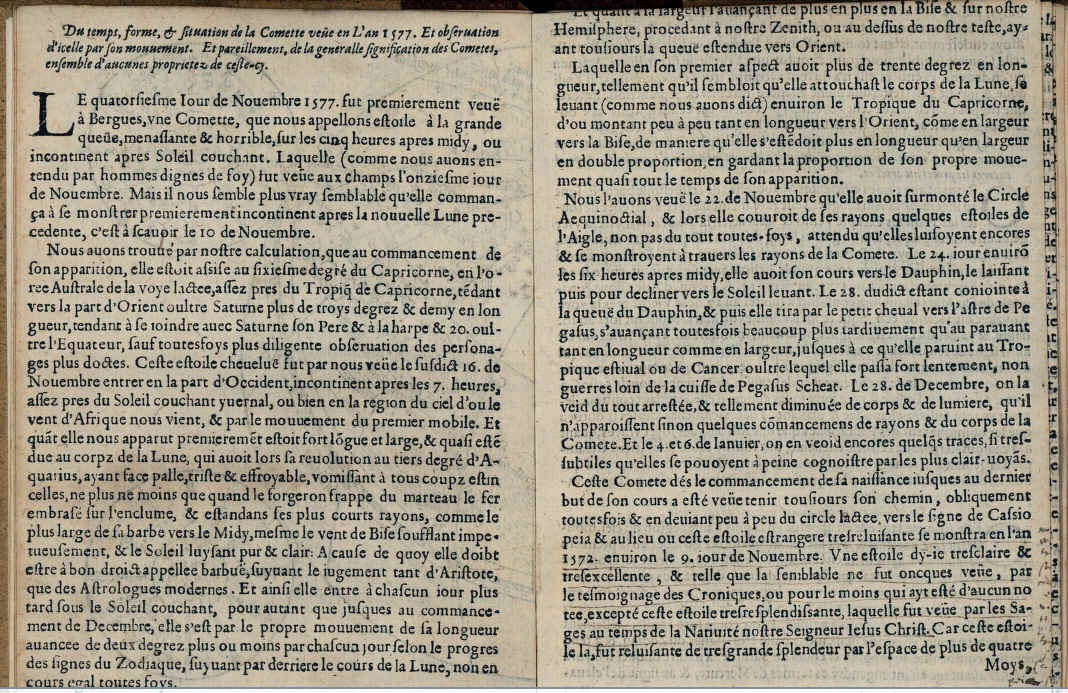 Du temps, forme, & situation de la Comette veüe en L'an 1577. Et obseruation
d'icelle par son mouuement. Et pareillement, de la generalle signification des Cometes,
ensemble d'aucunes proprietez de ceste-cy.
LE quatorsiesme Iour de Nouembre 1577. fut premierement veuë
à Bergues, vne Comette, que nous appellons estoile à la grande
queüe, menassante & horrible, sur les cinq heures apres midy, ou
incontinent apres Soleil couchant. Laquelle (comme nous auons en-
tendu par hommes dignes de foy) fut veüe aux champs l'onziesme iour
de Nouembre. Mais il nous semble plus vray semblable qu'elle comman-
ça à se monstrer premierement incontinent apres la nouuelle Lune pre-
cedente, c'est à sçauoir le 10 de Nouembre.
Nous auons trouué par nostre calculation, que au commancement de
son apparition, elle estoit assise au sixiesme degré du Capricorne, en l'o-
ree Australe de la voye lactee, assez pres du Tropiq̃ de Capricorne, tẽdant
vers la part d'Orient oultre Saturne plus de troys degrez & demy en lon
gueur, tendant à se ioindre auec Saturne son Pere & à la harpe & 20. oul-
tre l'Equateur, sauf toutesfoys plus diligente obseruation des persona-
ges plus doctes. Ceste estoile cheueluë fut par nous veüe le susdict 16. de
Nouembre entrer en la part d'Occident, incontinent apres les 7. heures,
assez pres du Soleil couchant yuernal, ou bien en la region du ciel d'ou le
vent d'Afrique nous vient, & par le mouuement du premier mobile. Et
quãt elle nous apparut premieremẽt estoit fort lõgue et large, & quasi estẽ
due au corpz de la Lune, qui auoit lors sa reuolution au tiers degré d'A-
quarius, ayant face palle, triste & effroyable, vomissant à tous coupz estin
celles, ne plus ne moins que quand le forgeron frappe du marteau le fer
embrasé sur l'enclume, & estandans ses plus courts rayons, comme le
plus large de sa barbe vers le Midy, mesme le vent de Bise soufflant impe-
tueusement, & le Soleil luysant pur & clair: A cause de quoy elle doibt
estre à bon droict appellee barbuë, suyuant le iugement tant d'Aristote,
que des Astrologues modernes. Et ainsi elle entre à chascun iour plus
tard sous le Soleil couchant, pour autant que jusques au commance-
ment de Decembre, elle s'est par le propre mouuement de sa longueur
auancee de deux degrez plus ou moins par chascun jour selon le progres
des signes du Zodiaque, suyuant par derriere le cours de la Lune, non en
cours egal toutes foys.
Et quant à la largeur l'auançant de plus en plus en la Bise & sur nostre
Hemisphere, procedant à nostre Zenith, ou au dessus de nostre teste, ay-
ant tousiours la queuë estendue vers Orient.
Laquelle en son premier aspect auoit plus de trente degrez en lon-
gueur, tellement qu'il sembloit qu'elle attouchast le corps de la Lune, se
leuant (comme nous auons dict) enuiron le Tropique du Capricorne,
d'ou montant peu à peu tant en longueur vers l'Orient, cõme en largeur
vers la Bise, de maniere qu'elle s'estẽdoit plus en longueur qu'en largeur
en double proportion, en gardant la proportion de son propre moue-
ment quasi tout le temps de son apparition.
Nous l'auons veuë le 22. de Nouembre qu'elle auoit surmonté le Circle
Aequinoctial, & lors elle couuroit de ses rayons quelques estoiles de
l'Aigle, non pas du tout toutes-foys, attendu qu'elles luisoyent encores
& se monstroyent à trauers les rayons de la Comete. Le 24. iour enuirõ
les six heures apres midy, elle auoit son cours vers le Dauphin, le laissant
puis pour decliner vers le Soleil leuant. Le 28. dudict estant coniointe à
la queuë du Dauphin, & puis elle tira par le petit cheual vers l'astre de Pe
gasus, s'auançant toutesfois beaucoup plus tardiuement qu'au parauant
tant en longueur comme en largeur, jusques à ce qu'elle paruint au Tro-
pique estiual ou de Cancer oultre lequel elle passa fort lentement, non
guerres loin de la cuisse de Pegasus Scheat. Le 28. de Decembre, on la
veid du tout arrestée, & tellement diminuée de corps & de lumiere, qu'il
n'apparoissent sinon quelques cõmancemens de rayons & du corps de la
Comete. Et le 4. et 6. de Ianuier, on en veoid encores quelq̃s traces, si tres-
subtiles qu'elles se pouoyent à peine cognoistre par les plus clair-uoyãs.
Ceste Comete dés le commancement de sa naissance iusques au dernier
but de son cours a esté veüe tenir tousiours son chemin, obliquement
toutesfois & en deuiant peu à peu du circle lactee, vers le signe de Cassio
peia & au lieu ou ceste estoile estrangere tresreluisante se monstra en l'an
1572. enuiron le 9. iour de Nouembre. Vne estoile dy-ie tresclaire &
tresexcellente, & telle que la semblable ne fut oncques veüe, par
le tesmoignage des Croniques, ou pour le moins qui ayt esté d'aucun no
tee, excepté ceste estoile tresresplendissante, laquelle fut veüe par les Sa-
ges au temps de la Natiuité nostre Seigneur Iesus Christ. Car ceste estoi-
le la, fut reluisante de tresgrande splendeur par l'espace de plus de quatre
Moys,